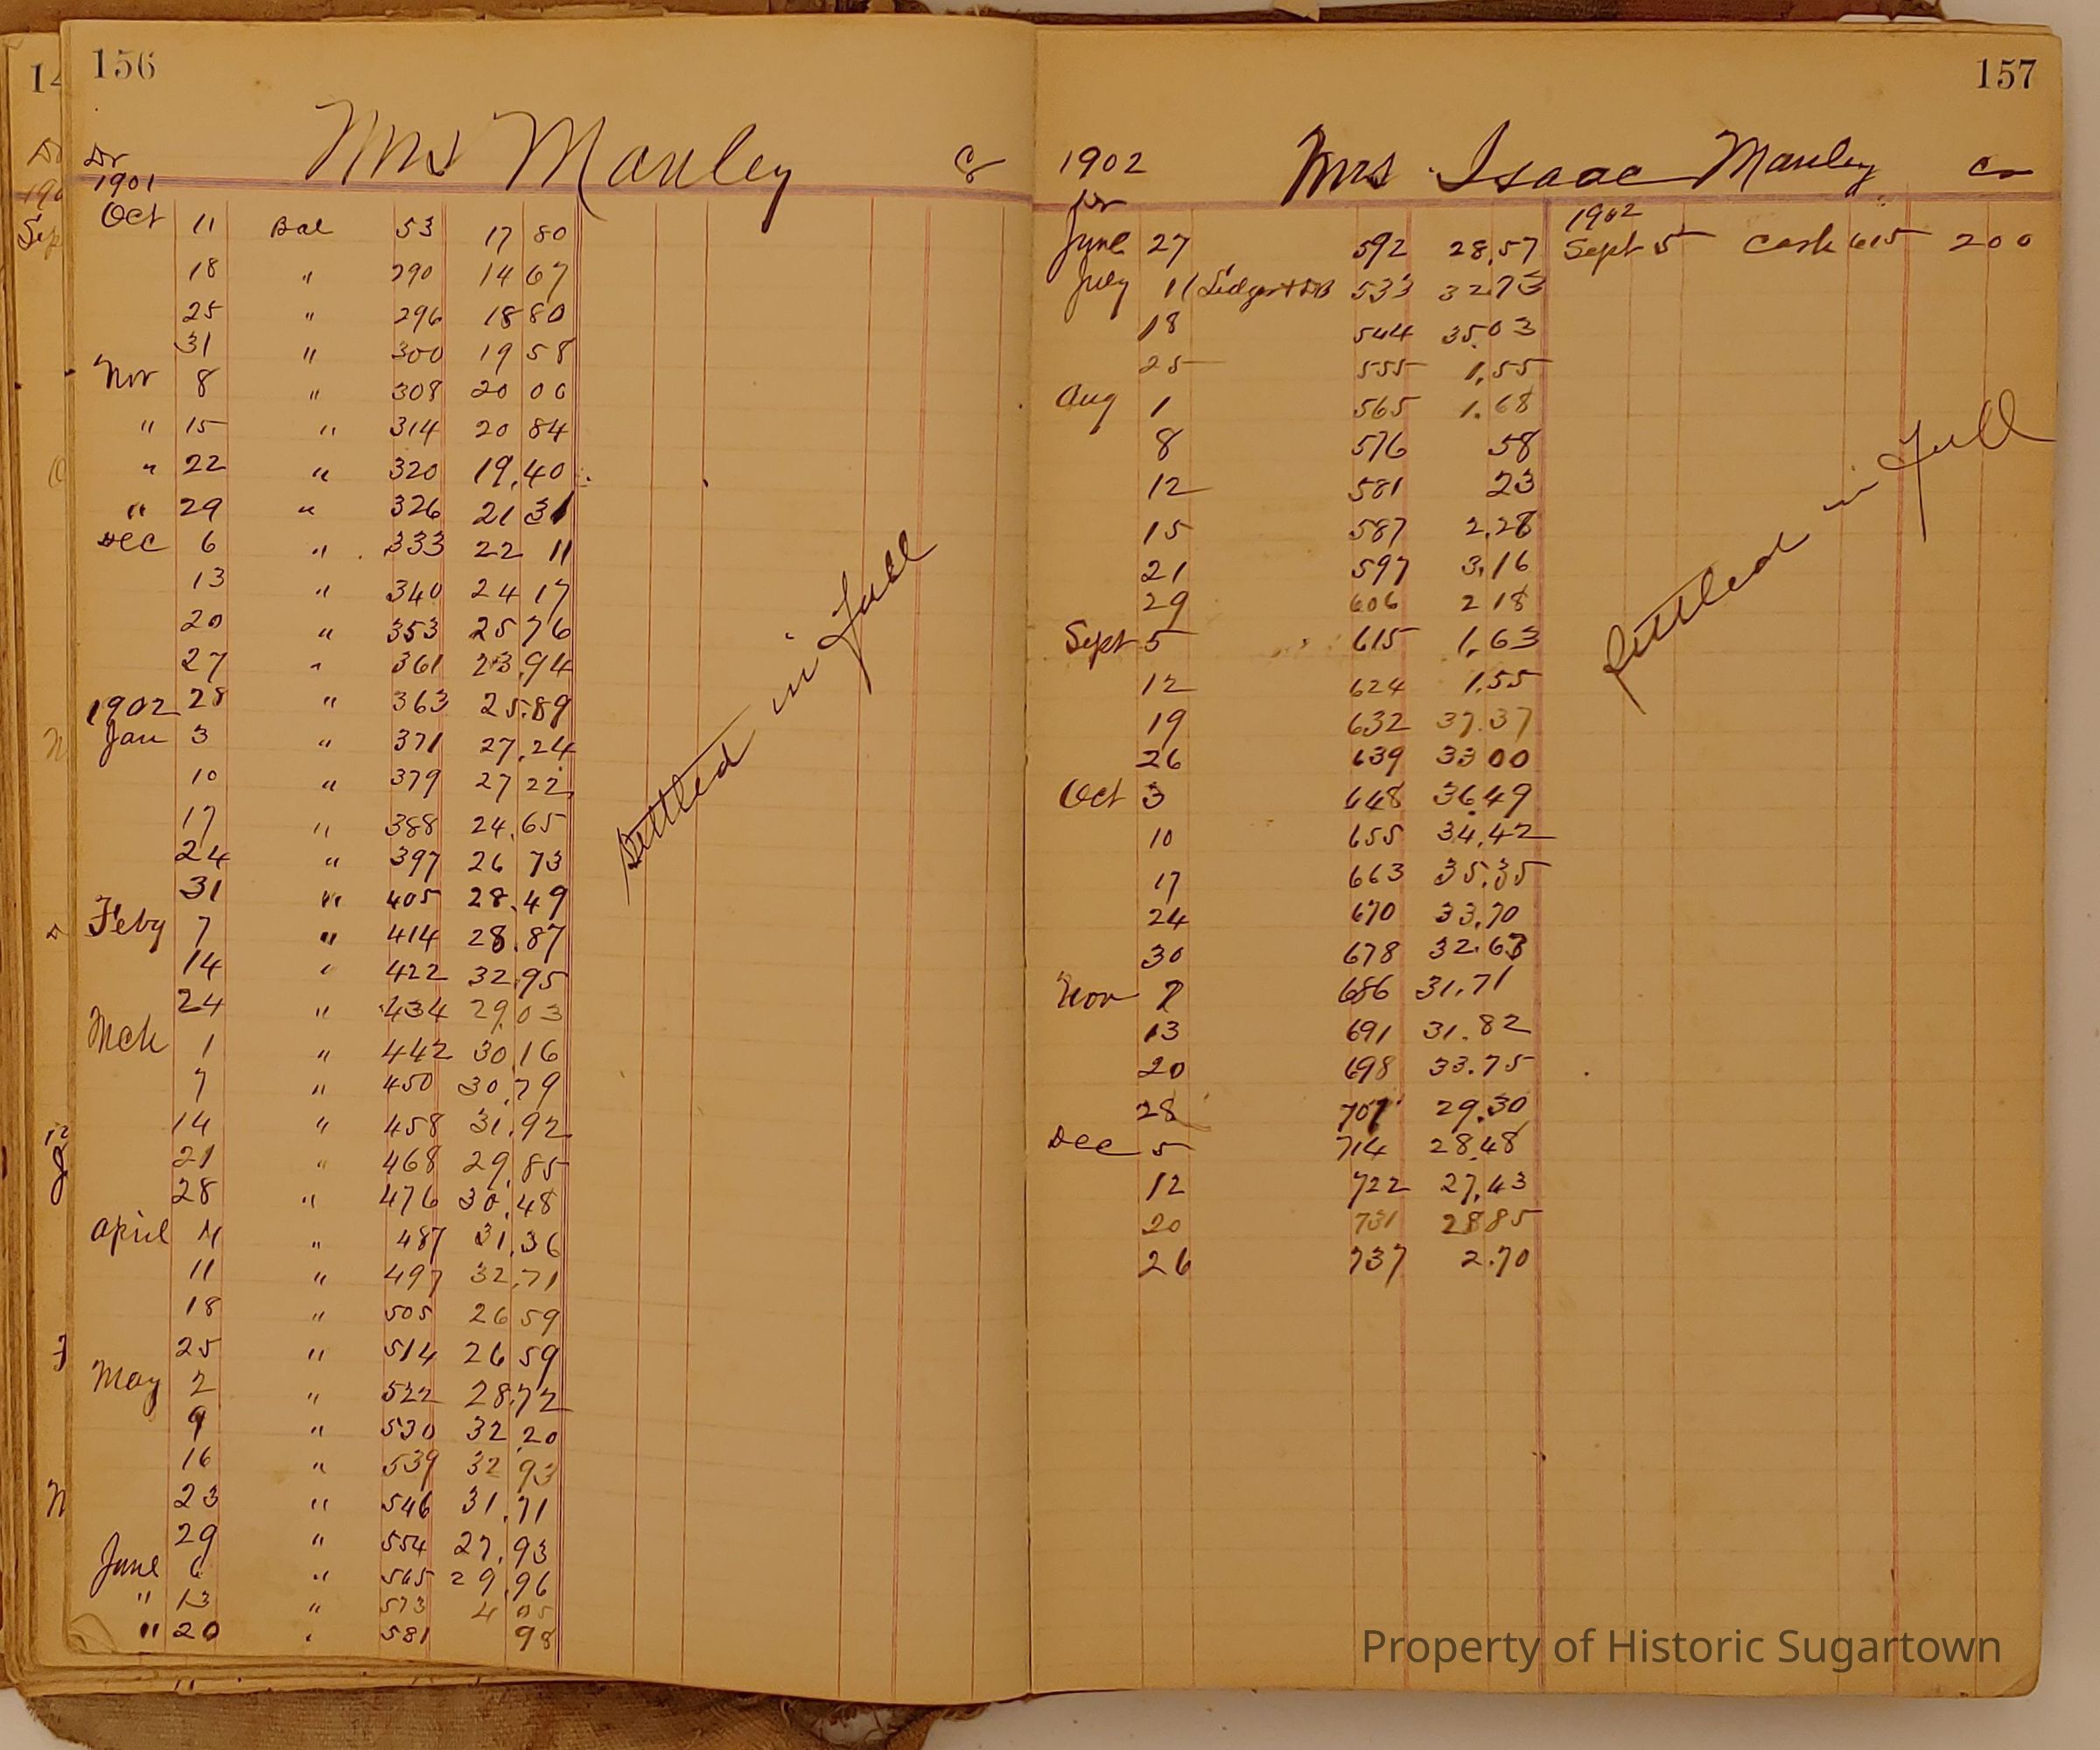 156
Mrs Manley
Dr Cr
1901
Oct 11 Bal 53 17 80
18 " 290 14 67
25 " 296 18 80
31 " 300 19 58
Nov 8 " 308 20 00
" 15 " 314 20 84
" 22 " 320 19.40
" 29 " 326 21 31
Dec 6 " 333 22 11
13 " 340 24 17
20 " 353 25 76
27 " 361 23.94
1902 28 " 363 25.89
Jan 3 " 371 27.24
10 " 379 27 22
17 " 388 24.65
24 " 397 26 73
31 " 405 28.49
Feby 7 " 414 28.87
14 " 422 32.95
24 " 434 29.03
Mch 1 " 442 30 16
7 " 450 30.79
14 " 458 31.92
21 " 468 29.85
28 " 476 30.48
April 4 " 487 31.36
11 " 497 32.71
18 " 505 26 59
25 " 514 26 59
May 2 " 522 28.72
9 " 530 32.20
16 " 539 32 93
23 " 546 31.71
29 " 554 27.93
June 6 " 565 29.96
" 13 " 573 4 05
" 20 " 581 98
Settled in Full
157
1902 Mrs Isaac Manley Cr
Dr
June 27 592 28.57 1902 Sept 5 Cash 615 2 00
July 11 Ledger + DB 533 32.73
18 544 35.03
25 555 1.55
Aug 1 565 1.68
8 576 58
12 581 23
15 587 2.28
21 597 3.16
29 606 2 18
Sept 5 615 1.63
12 624 1.55
19 632 37.37
26 639 33 00
Oct 3 648 36.49
10 655 34.42
17 663 35.35
24 670 33.70
30 678 32.63
Nov 7 686 31.71
13 691 31.82
20 698 33.75
28 707 29.30
Dec 5 714 28.48
12 722 27.43
20 731 28 85
26 737 2.70
Settled in Full
Property of Historic Sugartown